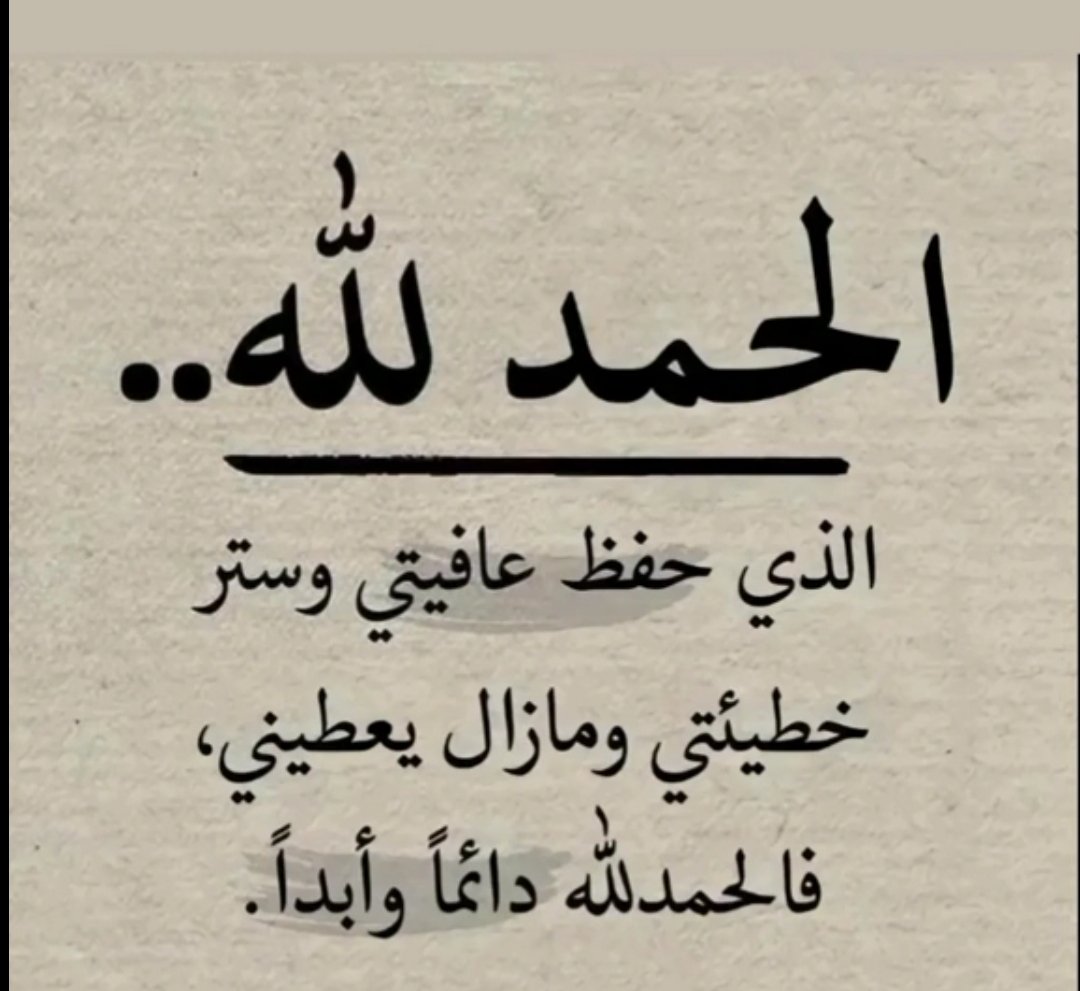 الحمد لله..
الذي حفظ عافيتي وستر
خطيئتي ومازال يعطيني،
فالحمدلله دائماً وأبداً.